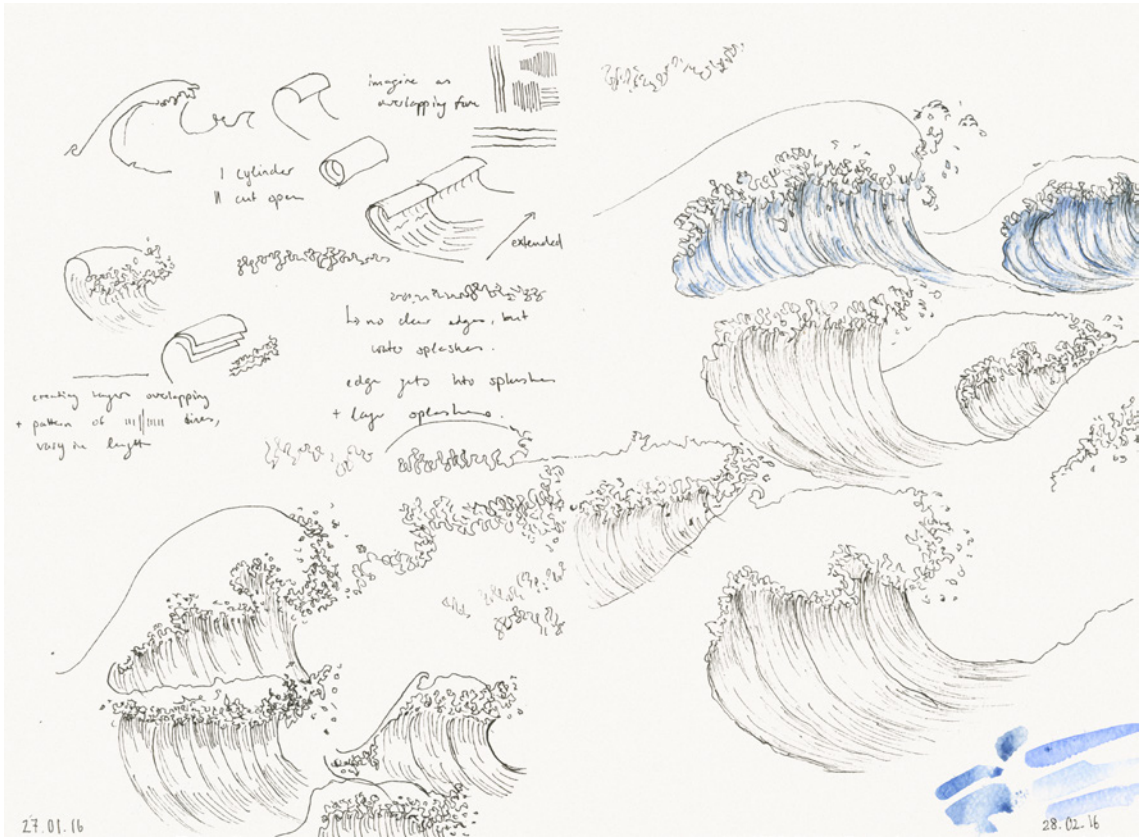 imagine as
overlapping form
I cylinder
II cut open
extended
↳ no clear edges, but
water splashes.
edge gets into splashes
+ layer splashes.
creating layers overlapping
+ pattern of lines,
vary in length
27.01.16
28.02.16